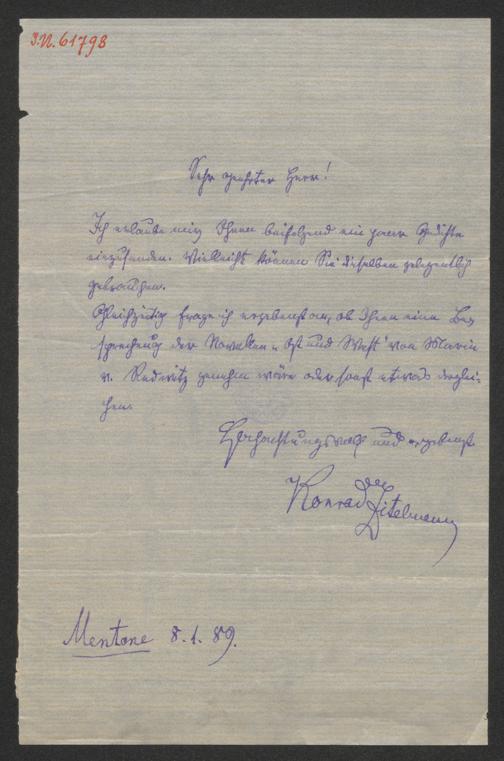 I.N. 61798
Sehr geehrter Herr!
Ich erlaube mir Ihnen beifolgend ein paar Gedichte
einzusenden. Vielleicht können Sie dieselben gelegentlich
gebrauchen.
Gleichzeitig frage ich ergebenst an, ob Ihnen eine Be-
sprechung der Novellen „Ost und West" von Marie
v. Redwitz genehm wäre oder sonst etwas derglei-
chen.
Hochachtungsvoll und ergebenst
Konrad Zitelmann
Mentone 8.1.89.